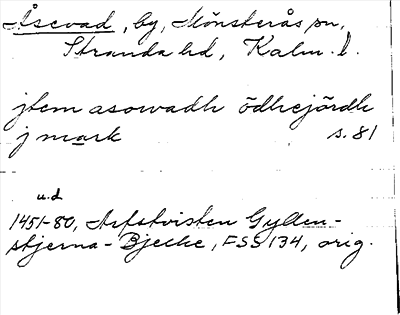 Åsevad, by, Mönsterås sn,
Stranda hd, Kalm. l.
jtem asowadh ödhejördh
j mark s. 81
u.d
1451-80, Arfstvisten Gylden-
stjerna-Bjelke, FSS 134, orig.